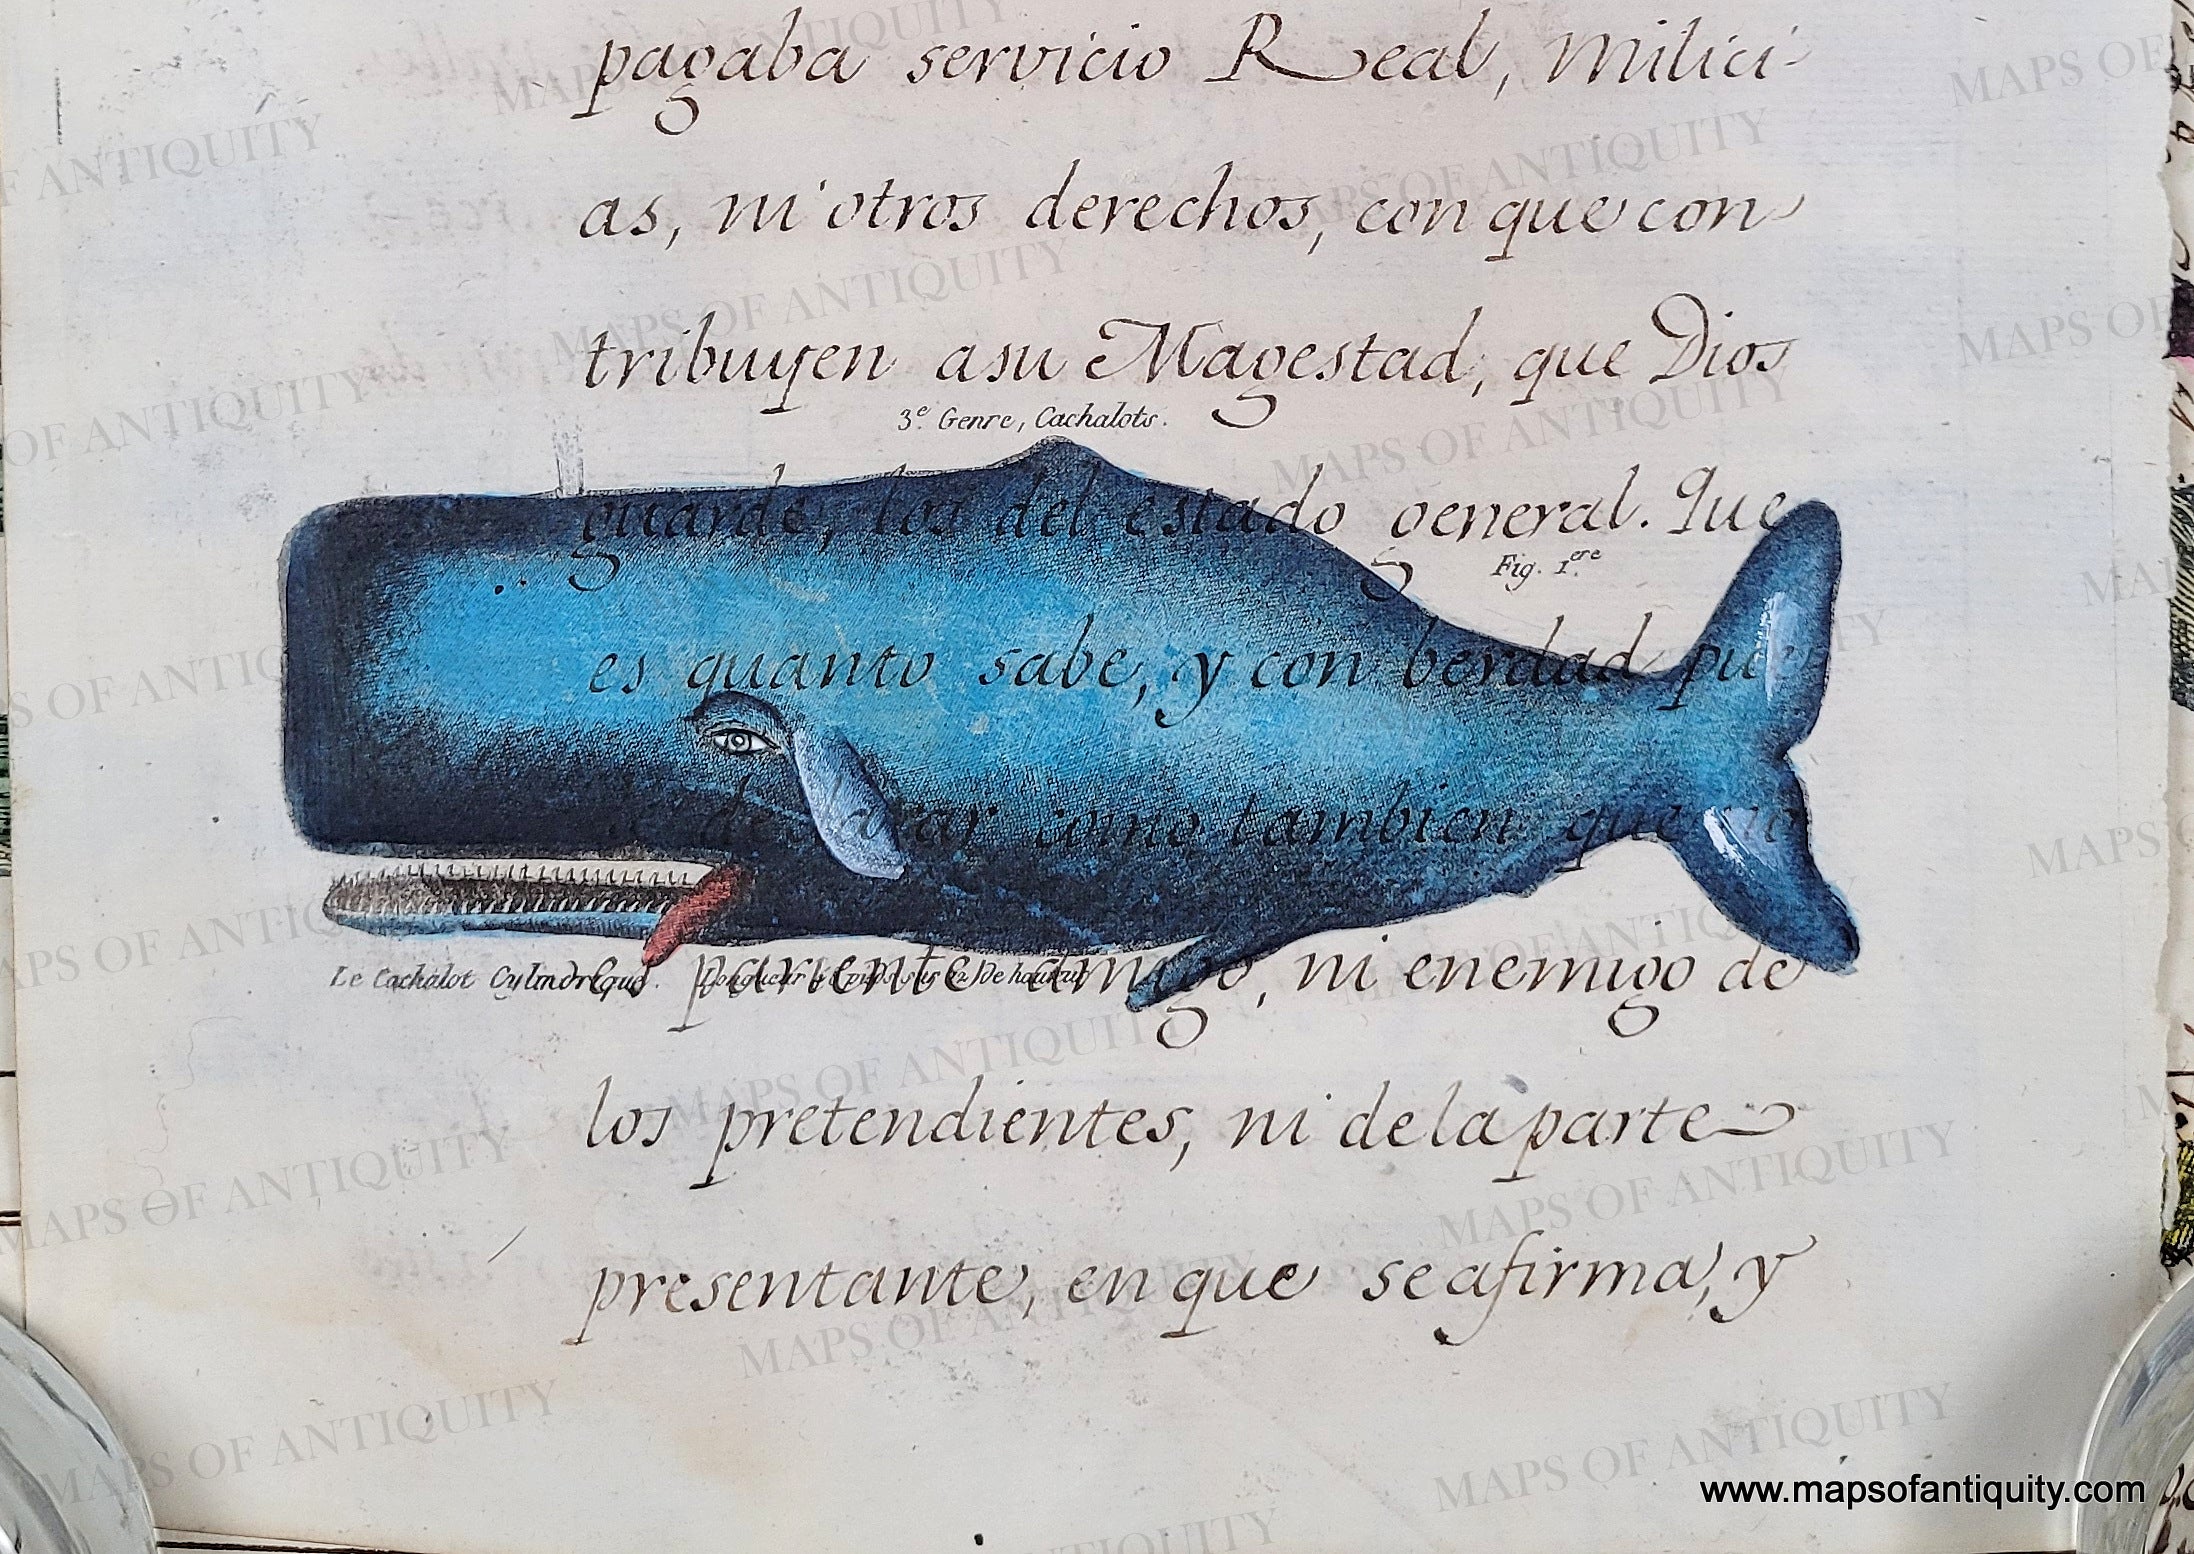 pagaba servicio Real, Milici-
as, ni otros derechos, con que con
tribuyen asu Magestad, que Dios
3e. Genre, Cachalots.
guarde, los del estado general. Que
Fig. 1.ere
es quanto sabe, y con berdad pue
declarar como tambien que no
es pariente amigo, ni enemigo de
Le Cachalot Cylindrique. Longueur 48 pieds sur 12 De hauteur
los pretendientes, ni de la parte
presentante, en que se afirma, y
MAPS OF ANTIQUITY
www.mapsofantiquity.com